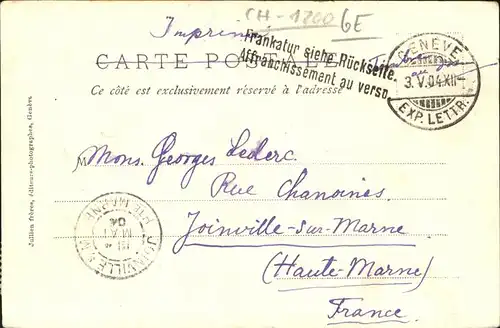 CH-1200 GE
Imprimé
Frankatur siehe Rückseite.
Affranchissement au verso.
CARTE POSTALE
Ce côté est exclusivement réservé à l'adresse
GENÈVE
3.V.04.XII
EXP. LETTR.
Timbre
au
Mons. Georges Leclerc.
Rue Chanoines
Joinville-sur-Marne
(Haute-Marne)
France.
JOINVILLE
MAI
04
HTE MARNE
Jullien Frères, éditeurs-photographes, Genève